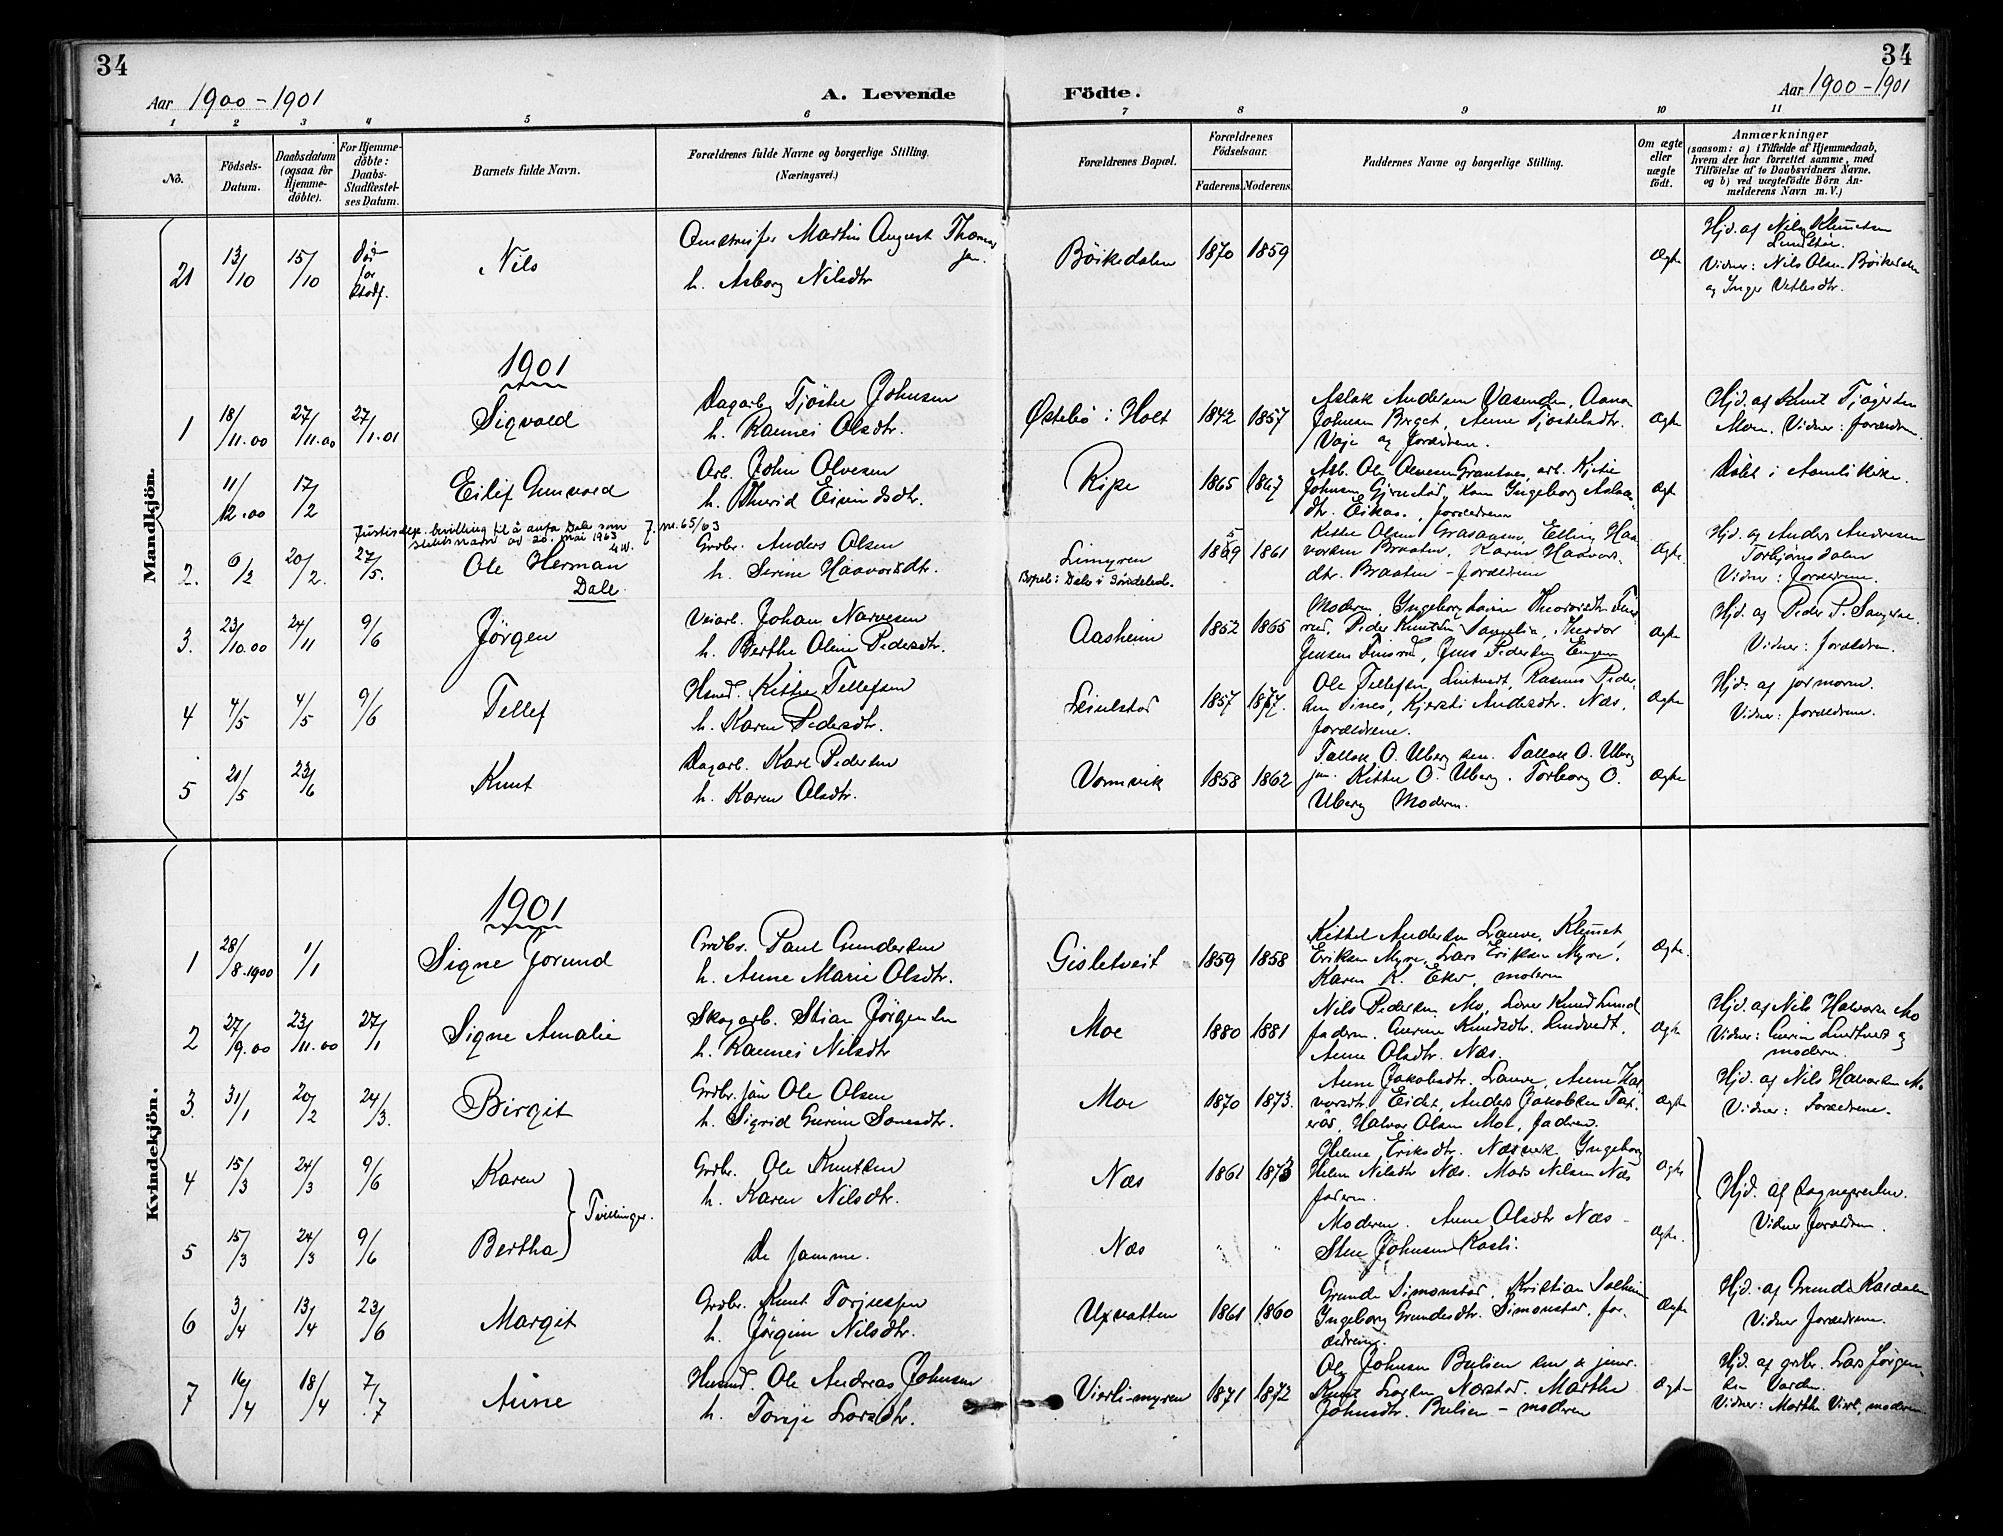 34
34
Aar 1900-1901
A. Levende Födte.
Aar 1900-1901
1 2 3 4 5 6 7 8 9 10 11
No.
Födsels-Datum.
Daabsdatum (ogsaa for Hjemme-döbte).
For Hjemme-döbte: Daabs-Stadfæstel-ses Datum.
Barnets fulde Navn.
Forældrenes fulde Navne og borgerlige Stilling. (Næringsvei.)
Forældrenes Bopæl.
Forældrenes Födselsaar.
Faderens. Moderens.
Faddernes Navne og borgerlige Stilling.
Om ægte eller uægte födt.
Anmærkninger (saasom: a) i Tilfælde af Hjemmedaab, hvem der har forrettet samme, med Tilföielse af to Daabsvidners Navne. og b) ved uægtefödte Börn An-melderens Navn m. V.)
Mandkjön.
21 13/10 15/10 Död før stadf. Nils
Martin August Thomas
h. Asborg Nilsdtr
Böiksdalen 1870 1859 Ægte
Hjd. af Nils Klemetsen
Vidner: Nils Olsen Böiksdalen
og Inger Vetlesdtr.
1901
1 18/11.00 27/11.00 27/1.01 Sigvald
Dagarb. Tjöstel Johnsen
h. Rannei Olsdtr.
Østebö i Holt 1842 1857
Aslak Andersen Vasenden, Aanon
Johnsen Berget, Anne Tjöstelsdtr.
Vaje og Forældrene.
Ægte
Hjd. af Knut Tjögersen
Moen. Vidner: Forældrene.
11/12.00 17/2 Eilef Gunvald
Arb. John Olvesen
h. Thurid Eivindsdtr.
Ripe 1865 1867
Arb. Ole Olvesen Grantnes, arb. Kjetil
Johnsen Gjernstad, kone Ingeborg Aslaks-
dtr. Eikaas, forældrene
Ægte
Döbt i Aamli Kirke.
Justisdep. bevilling til å anta Dale som J.nr. 65/63
slektsnavn av 20. mai 1963
2. 6/2 20/2. 27/5. Ole Herman
Dale
Grdbr. Anders Olsen
h. Serine Haavorsdtr.
Limyren
Bopel: Dale i Söndeled.
1859 1861
Kittel Olsen Graasaasen, Elling Haa-
vorsen Braaten, Karen Haavors-
dtr. Braaten - Forældrene
Ægte.
Hjd. af Anders Andresen
Torbjörnsdalen
Vidner: Forældrene.
3. 23/10.00 24/11 9/6 Jörgen
Veiarb. Johan Narvesen
h. Berthe Oline Pedersdtr.
Aasheim 1852 1865
Moderen, Ingeborg Lovise Thorvorsdtr. Fins-
rud, Peder Knutsen Songelia, Thorvor
Jensen Finsrud, Jens Pedersen Engene
Ægte
Hjd. af Peder P. Songene.
Vidner: Forældrene.
4 4/5 4/5 9/6 Tellef
Husmd. Kittel Tellefsen
h. Karen Pedersdtr.
Leivlstad 1857 1877.
Ole Tellefsen Lindtveit, Rasmus Peder-
sen Sines, Kjersti Andersdtr. Næs,
forældrene.
Ægte
Hjd. af jormoren.
Vidner: Forældrene.
5 21/5 23/6 Knut
Dagarb. Karl Pedersen
h. Karen Olsdtr.
Vormvik 1858 1862
Tallak O. Uberg sen. Tallak O. Uberg
jun. Kittel O. Uberg, Torborg O.
Uberg Moderen.
Ægte
Kvindekjön.
1901
1 28/8.1900 1/1 Signe Jorund
Grdbr. Paul Gundersen
h. Anne Marie Olsdtr.
Gisletveit 1859 1858
Kittel Andersen Lauve, Klemet
Eriksen Myre, Lars Eriksen Myre,
Karen K. Eker, moderen
Ægte.
2 27/9.00 23/11.00 27/1 Signe Amalie
Skogarb. Stian Jörgensen
h. Rannei Nilsdtr
Moe 1880 1881
Nils Pedersen Mo, Knud Lund
faderen. Gurine Knudsdtr. Lindtvedt,
Anne Olsdtr. Næs.
Ægte
Hjd. af Nils Halvorsen Mo
Vidner: Gurine Lindtvedt og
moderen.
3. 31/1 20/2 24/3. Birgit
Grdbr. sön Ole Olsen
h. Sigrid Gurine Sonesdtr.
Moe 1870 1873.
Anne Jakobsdtr. Lauve, Anne Hal-
vorsdtr. Eidet, Anders Jakobsen Tax-
eraas, Halvor Olsen Moe, faderen.
Ægte
Hjd. af Nils Halvorsen Mo
Vidner: Forældrene.
4 15/3 24/3 9/6 Karen
Grdbr. Ole Knutsen
h. Karen Nilsdtr.
Næs 1861 1873
Helene Eriksdtr. Næsvik, Ingeborg
Helene Nilsdtr Næs. Mads Nilsen Næs
faderen.
Ægte
Tvillinger.
Hjd. af Sognepresten.
Vidner Forældrene.
5 15/3 24/3 9/6 Bertha
De samme.
Næs " "
Moderen. Anne Olsdtr Næs -
Sten Johnsen Kasli.
Ægte.
6 3/4 13/4 23/6 Margit
Grdbr. Knut Torjussen
h. Jörgine Nilsdtr.
Uxvatten 1861 1860
Grunde Simonstad, Kristian Solheim
Ingeborg Grundesdtr. Simonstad, for-
ældrene.
Ægte
Hjd. af Grunde Kasdalen
Vidner Forældrene.
7 16/4 18/4 7/7 Anne
Husmd. Ole Andreas Johnsen
h. Torje Larsdtr.
Vierli-myren 1871 1872
Ole Johnsen Bulien sen & junr.
Knut Larsen Nærstad. Marthe
Johnsdtr. Bulien - moderen
Ægte
Hjd. af grdbr. Lars Jörgen-
sen Varden.
Vidner: Marthe Vierl., moderen.